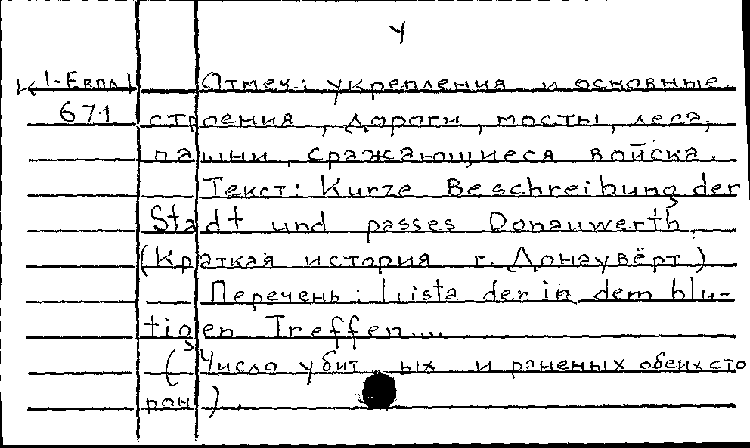 4
К 1-Европ
671
Отмеч.: укрепления и основные
строения, дороги, мосты, леса,
пашни, сражающиеся войска.
Текст: Kurze Beschreibung der
Stadt und passes Donauwerth.
(Краткая история г. Донаувёрт)
Перечень: Lista der in dem blu-
tigen Treffen...
(Число убитых и раненых обеих сто
рон)